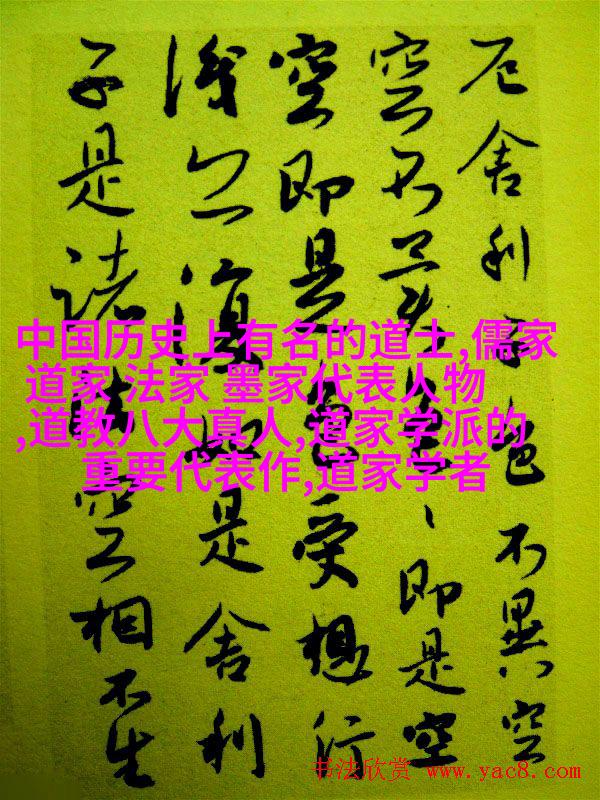 厄舍利子色不異空
空不異色、即是空
空即是色受想行
識亦復如是舍利
子是諸法空相不生
中国历史上有名的道士,儒家
道家 法家 墨家代表人物
,道教八大真人,道家学派的
重要代表作,道家学者
书法欣赏 www.yac8.com